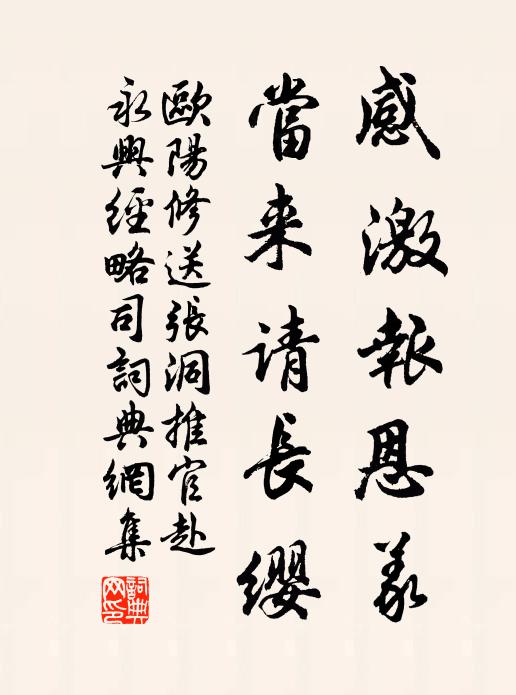 感激報恩義
當来请長缨
歐陽修送張洞推官赴
永興經略司詞典網集
詞典
网印